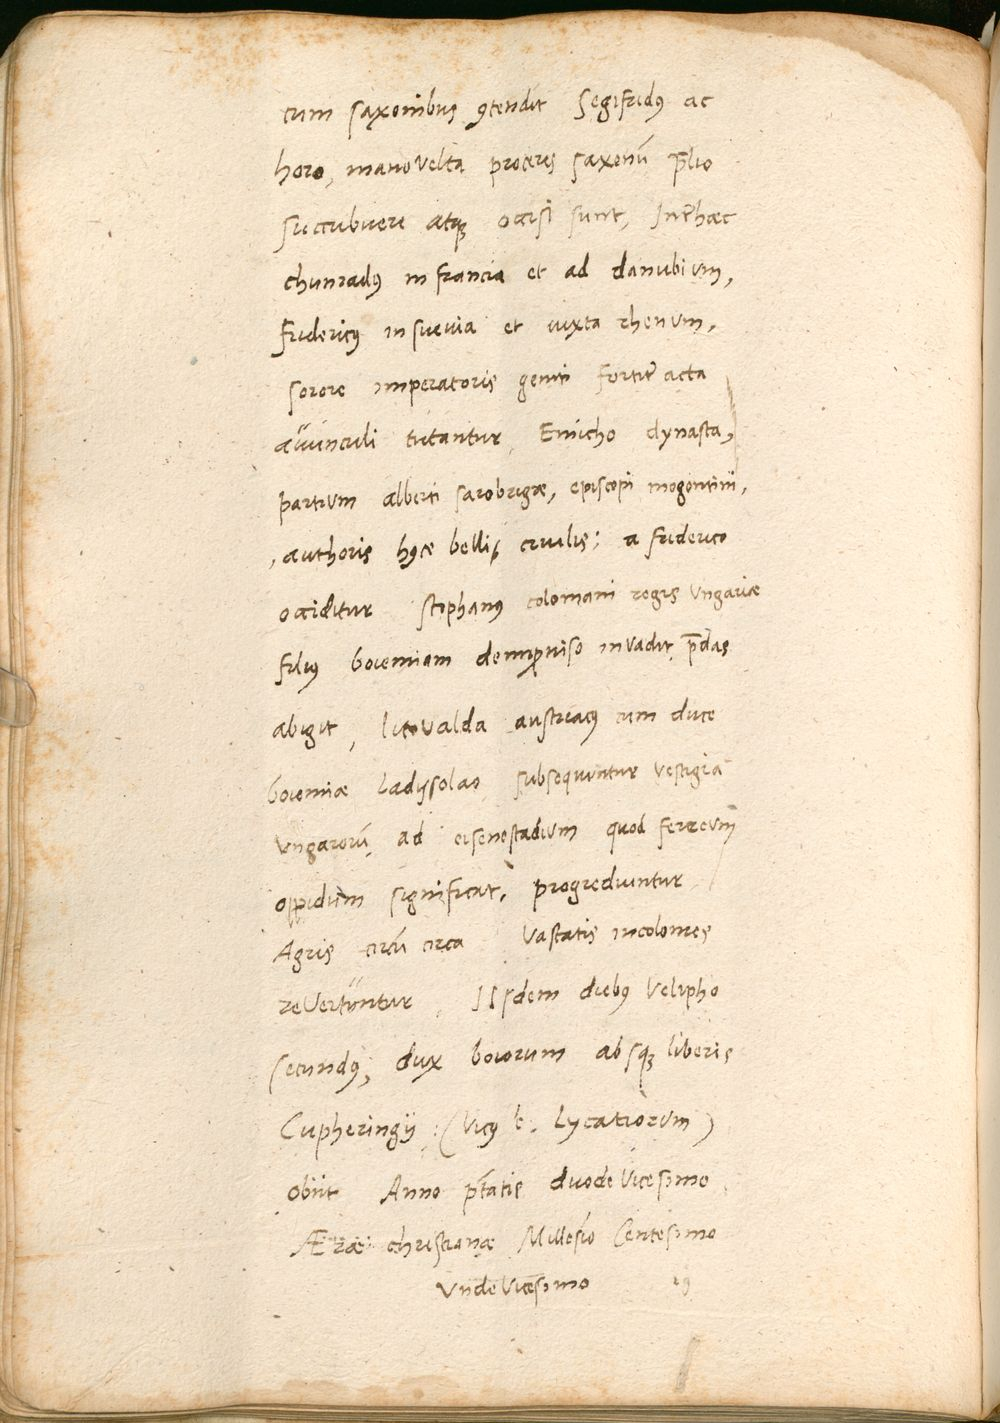 cum saxonibus ꝯtendit Segifridꝰ ac
horo, manovelta proceres saxonū p̄lio
succubuere atqꝫ occisi sunt, Int̄hæc
chunradꝰ in francia et ad danubium,
fridericꝰ in suevia et iuxta rhenum,
sorore imperatoris geniti fortit̄ acta
avunculi tutantur, Emicho dynasta,
partium alberti sarobrigæ, episcopi mogontini,
authoris hꝰce belli civilis; a friderico
occiditur Stephanꝰ colomani regis ungariæ
filiꝰ boiemiam de improviso invadit p̄das
abigit, litovalda austriacꝰ cum duce
boiemiæ Ladyslao subsequuntur vestigia
ungarorū, ad eisenestadium quod ferreum
oppidum significat, progrediuntur
Agris circū circa vastatis incolomes
revertuntur, IIsdem diebꝰ velipho
secundꝰ, dux boiorum absqꝫ liberis
Cupheringii (vicꝰ Lycatiorum)
obiit Anno p̄tatis duodevicesimo
Æræ christianæ Millesīo Centesimo
undevicesimo 19